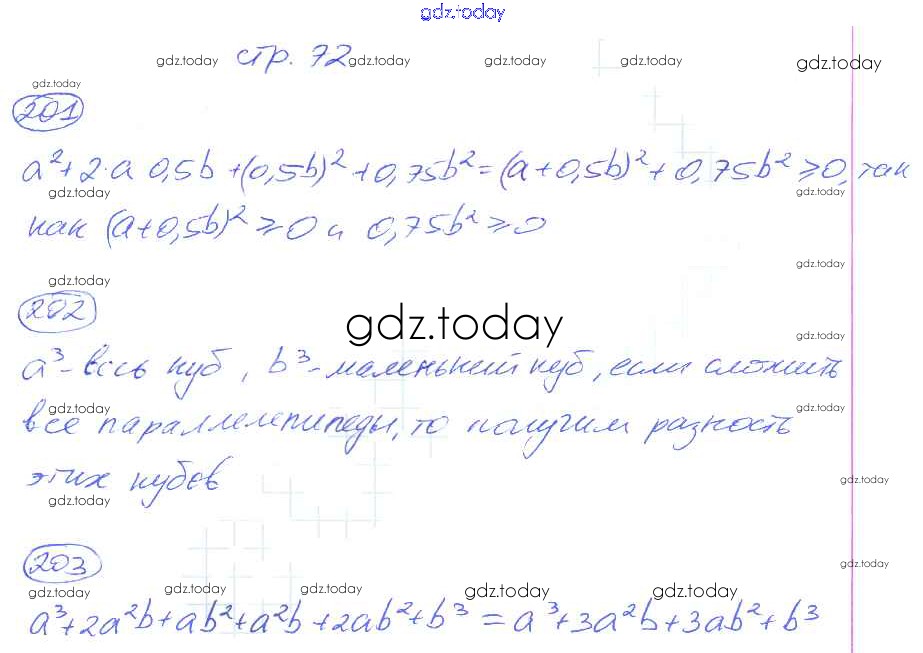 gdz.today
gdz.today стр. 72 gdz.today gdz.today gdz.today gdz.today
gdz.today
201
a² + 2·a 0,5b + (0,5b)² + 0,75b² = (a + 0,5b)² + 0,75b² ⩾ 0, так
gdz.today gdz.today
как (a + 0,5b)² ⩾ 0 и 0,75b² ⩾ 0
gdz.today
gdz.today
202
gdz.today
gdz.today
a³ - весь куб, b³ - маленький куб, если сложить
gdz.today gdz.today
все параллелепипеды, то получим разность
этих кубов
gdz.today
gdz.today
203
gdz.today
gdz.today gdz.today gdz.today gdz.today gdz.today
a³ + 2a²b + ab² + a²b + 2ab² + b³ = a³ + 3a²b + 3ab² + b³